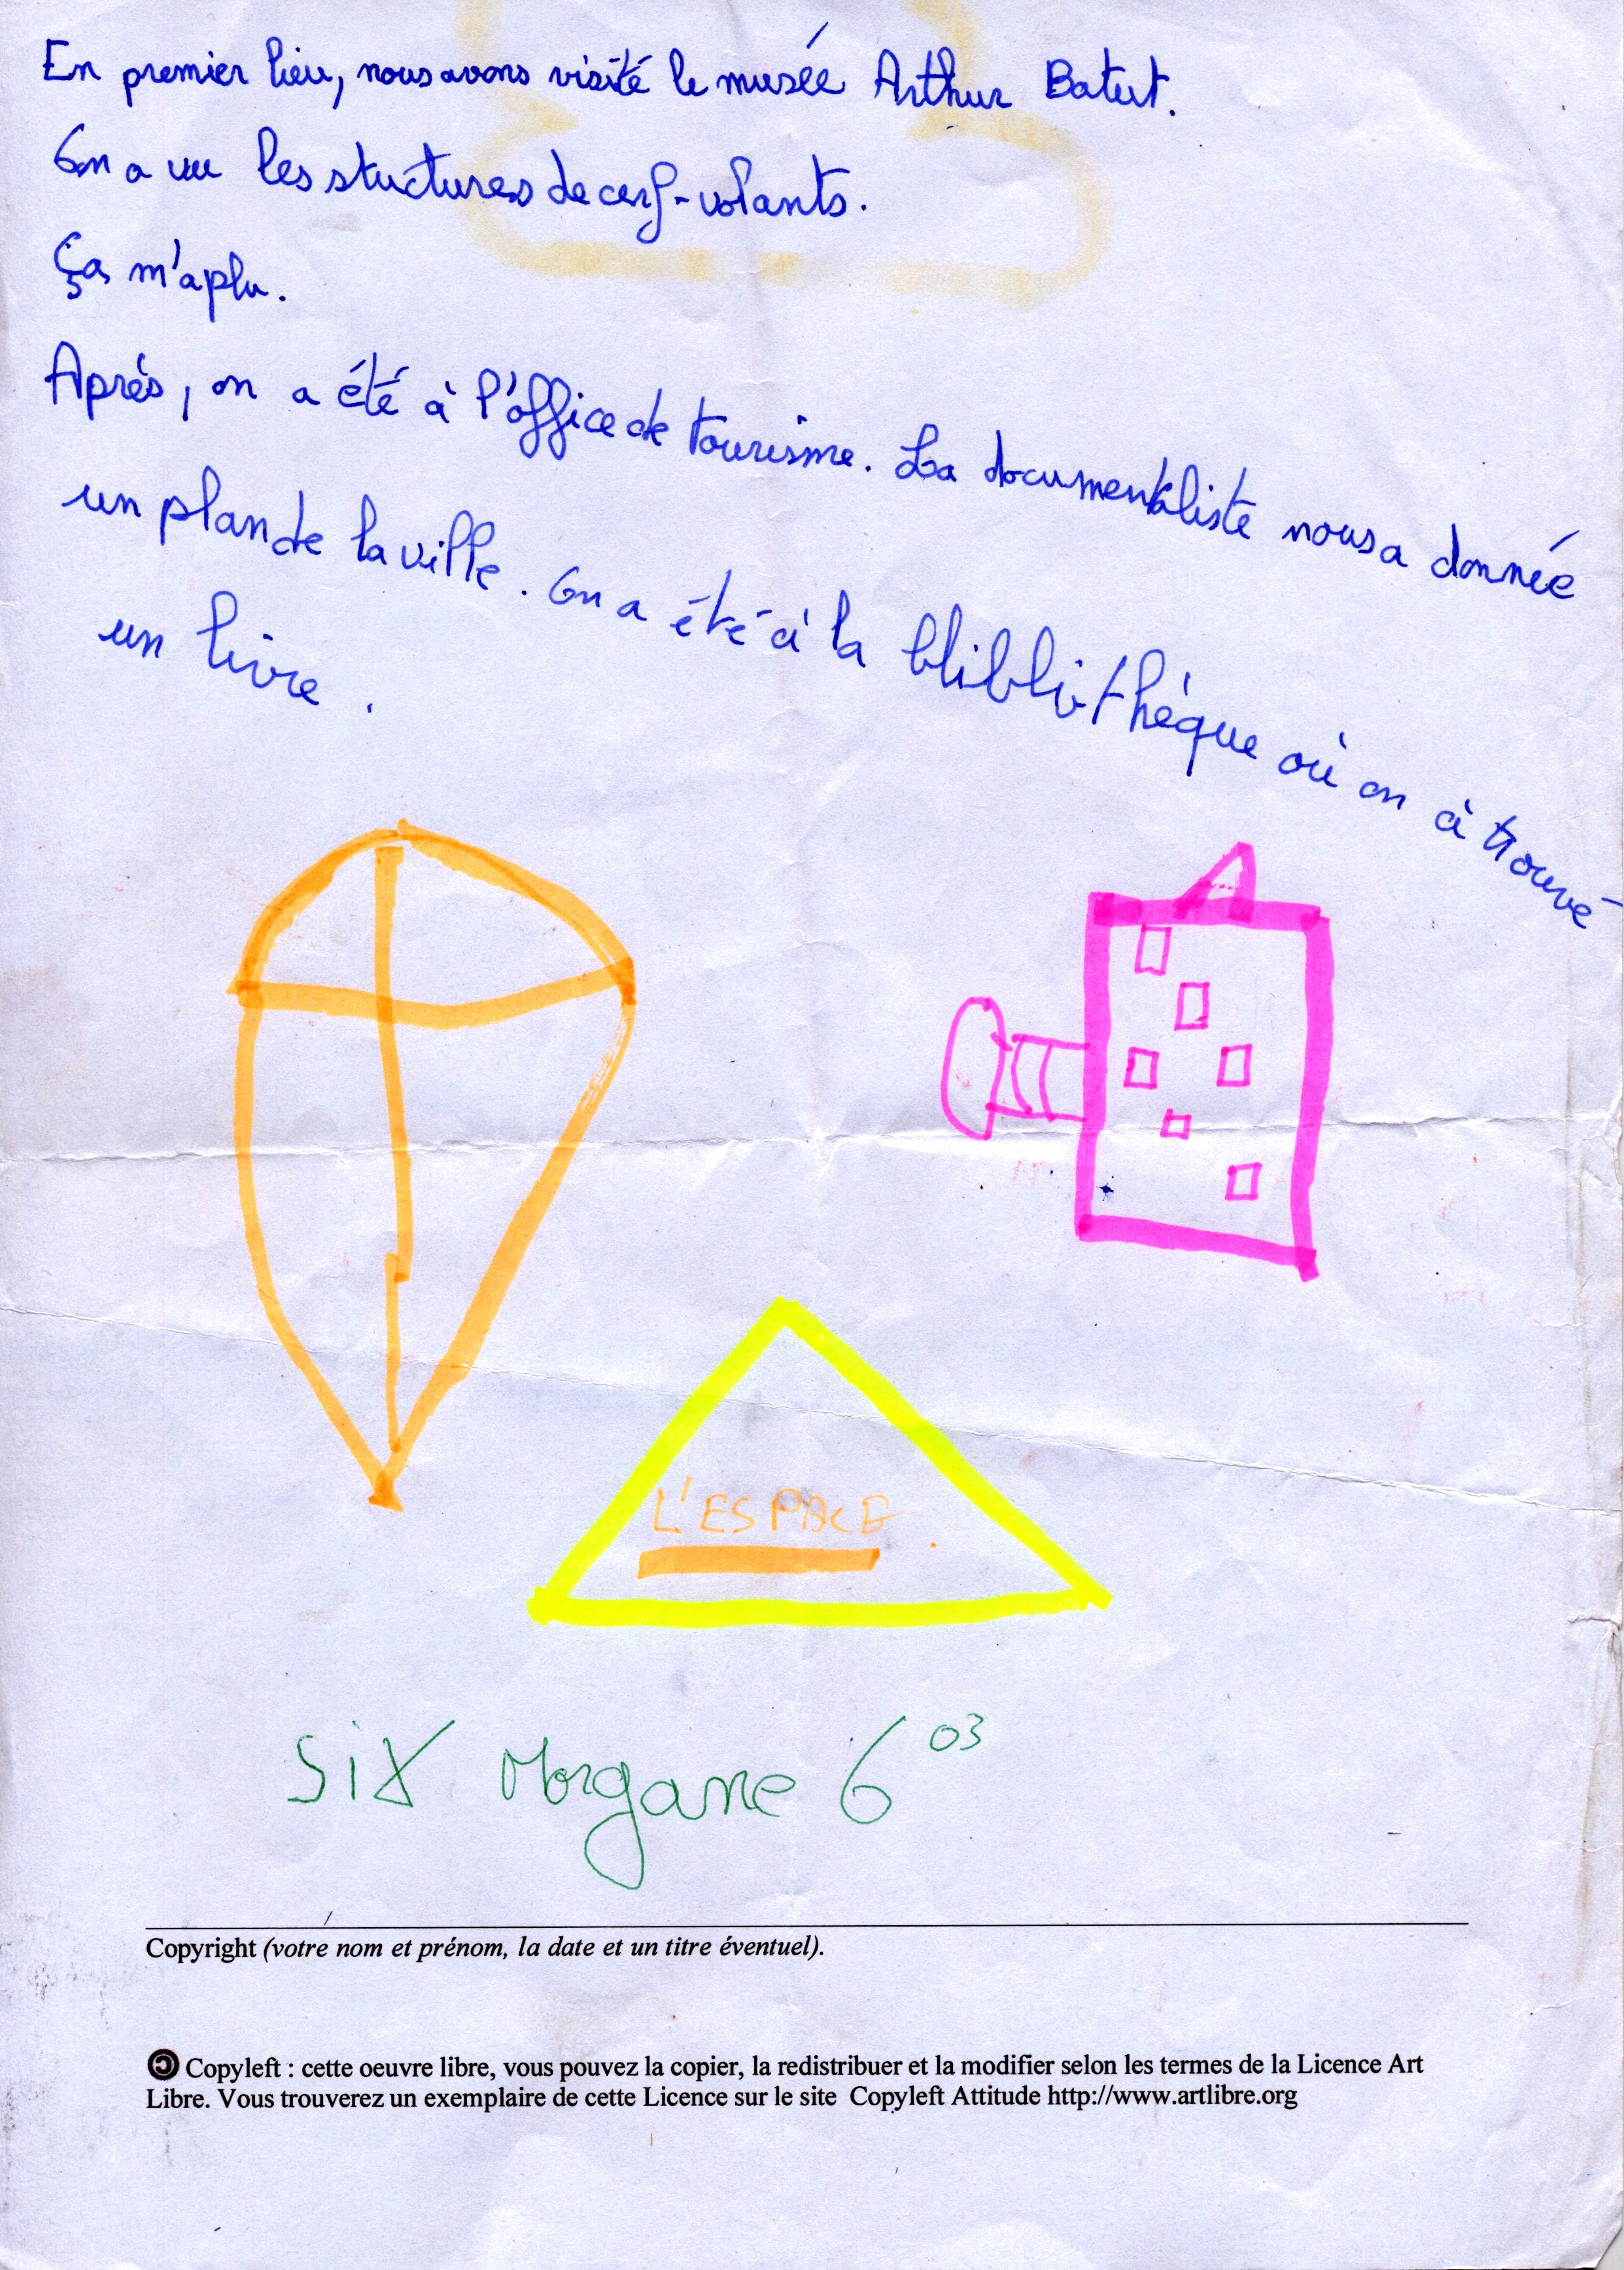 En premier lieu, nous avons visité le musée Arthur Batut.
On a vu les stuctures de cerf-volants.
Ça m'a plu.
Après, on a été à l'office de tourisme. La documentaliste nous a donnée
un plan de la ville. On a été à la bliblivthèque où on à trouvé
un livre.
L'ESPACE
Six Morgane 6 03
Copyright (votre nom et prénom, la date et un titre éventuel).
Copyleft : cette oeuvre libre, vous pouvez la copier, la redistribuer et la modifier selon les termes de la Licence Art
Libre. Vous trouverez un exemplaire de cette Licence sur le site Copyleft Attitude http://www.artlibre.org